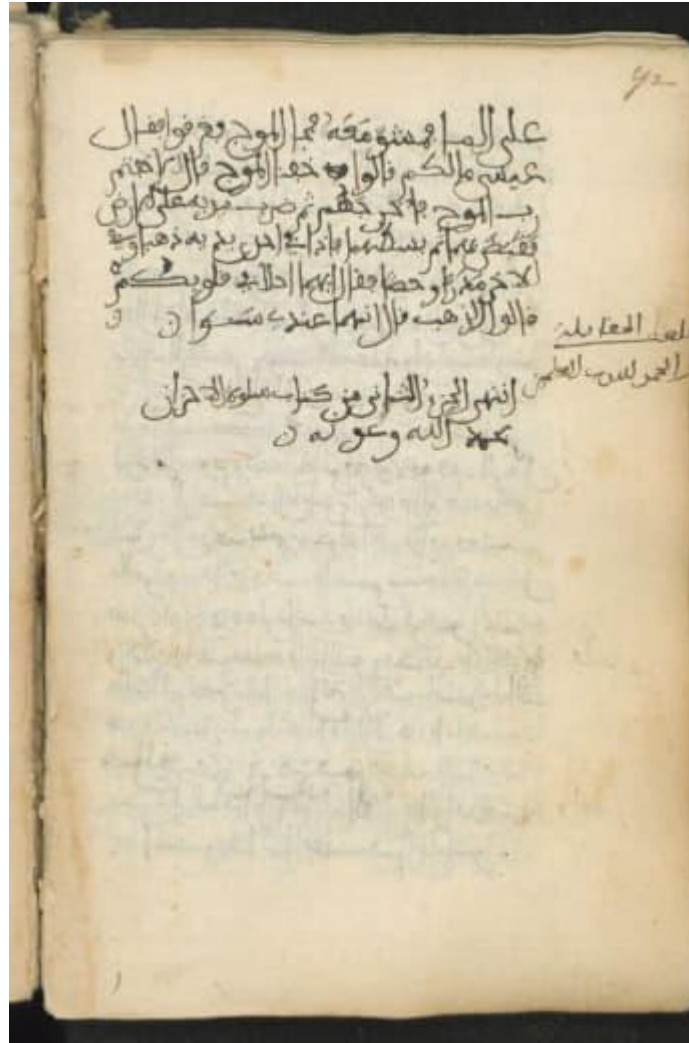 42
على الما فمشوا معه فجا الموج فغرقوا فقال
عيسى مالكم قالوا خفنا الموج قال الا خفتم
رب الموج فاخرجهم ثم ضرب بيده على الارض
فقبض بهما ثم بسطهما فاذا في احدى يديه ذهب وفي
الاخرى مدرا او حصا فقال ايهما احلا في قلوبكم
قالوا الذهب قال انهما عندي سوا
بلغت المقابلة
والحمد لله رب العالمين
انتهى الجزء الثاني من كتاب سلوة الاحزان
بحمد الله وعونه